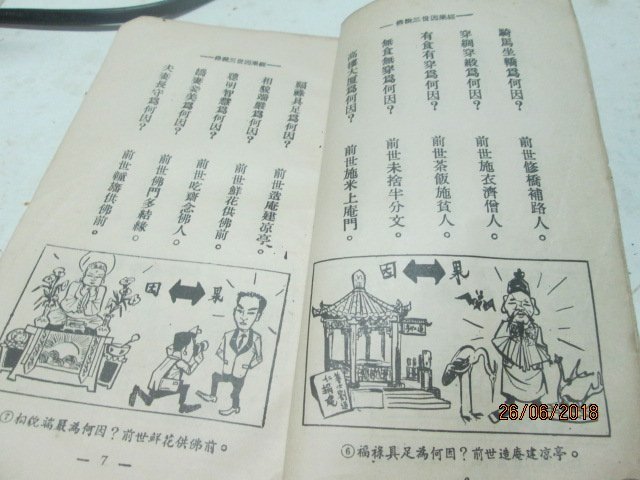 經果因世三說佛
騎馬坐轎爲何因？ 前世修橋補路人。
穿綢穿緞爲何因？ 前世施衣濟僧人。
有食有穿爲何因？ 前世茶飯施貧人。
無食無穿爲何因？ 前世未捨半分文。
高樓大廈爲何因？ 前世施米上庵門。
因 果
⑥福祿具足為何因？前世造庵建凉亭。
26/06/2018
經果因世三說佛
福祿具足爲何因？ 前世造庵建凉亭。
相貌端嚴爲何因？ 前世鮮花供佛前。
聰明智慧爲何因？ 前世吃齋念佛人。
嬌妻美妾爲何因？ 前世佛門多結緣。
夫妻長守爲何因？ 前世幢旛供佛前。
因 果
⑦相貌端嚴為何因？前世鮮花供佛前。
— 7 —